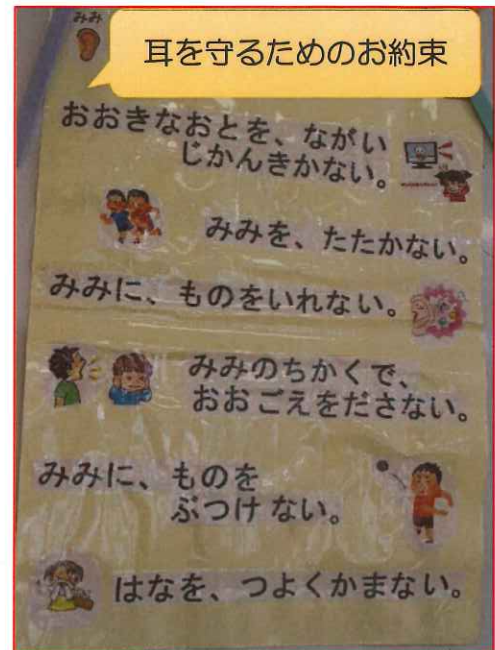 みみ
耳を守るためのお約束
おおきなおとを、ながい
じかんきかない。
みみを、たたかない。
みみに、ものをいれない。
みみのちかくで、
おおごえをださない。
みみに、ものを
ぶつけ ない。
はなを、つよくかまない。